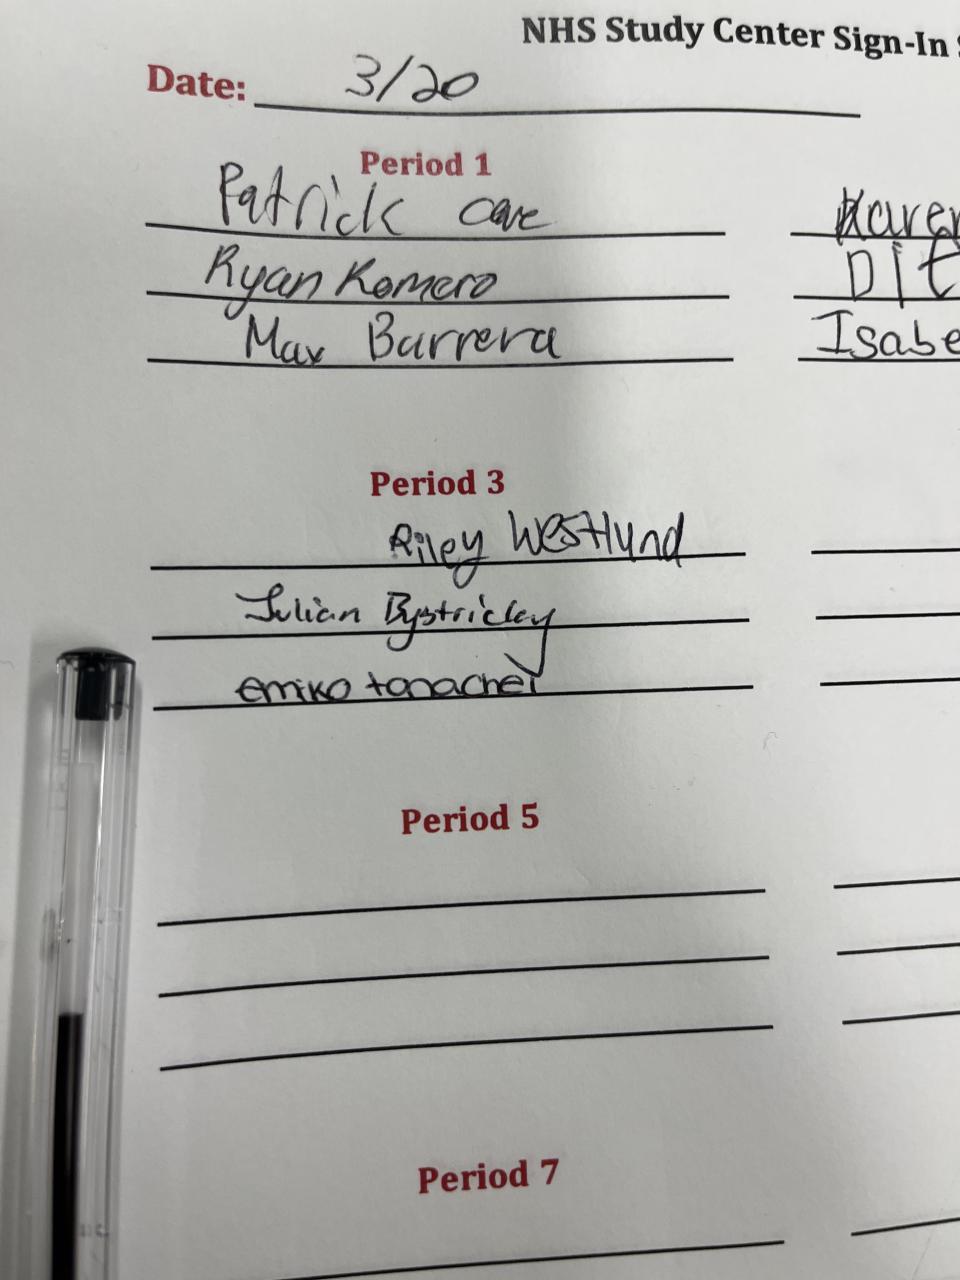 NHS Study Center Sign-In
Date: 3/20
Period 1
Patrick Cave
Ryan Romero
Max Barrera
Isabe
Period 3
Riley Westlund
Julian Bystricky
emiko tanachei
Period 5
Period 7